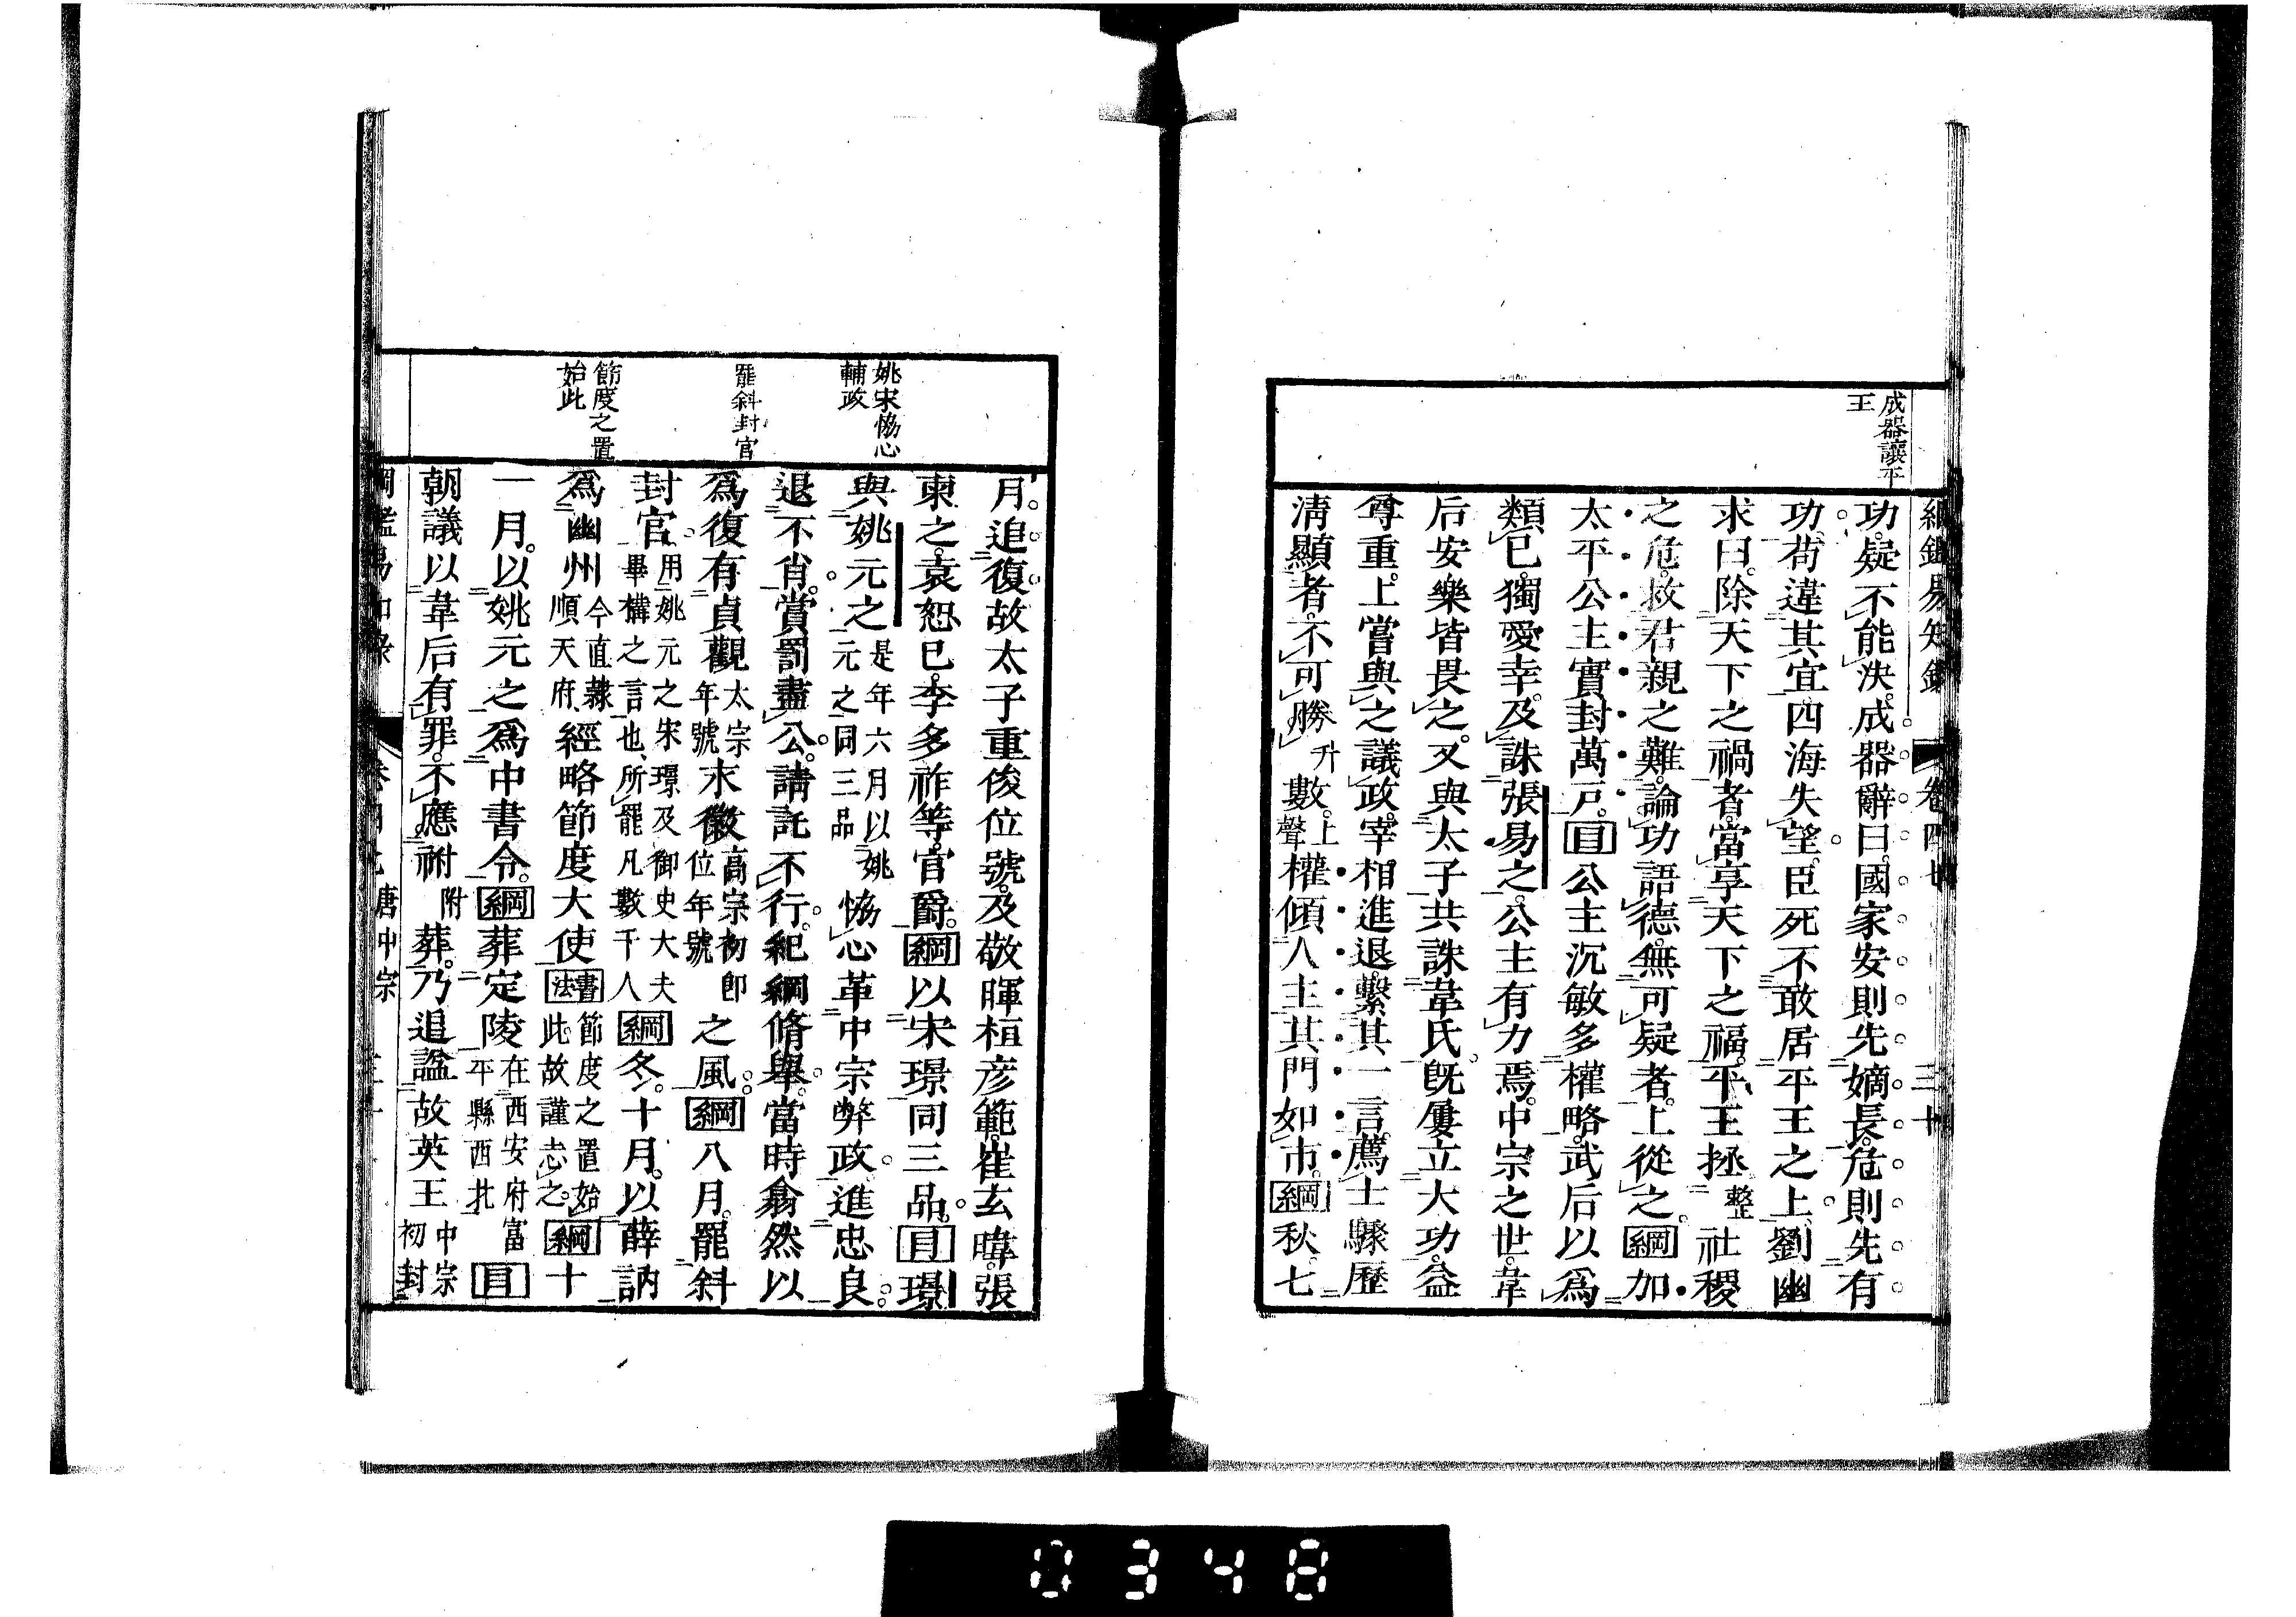 綱鑑易知錄 卷四七 三十
成器讓平
王
功。疑不能決。成器辭曰。國家安則先嫡長。危則先有
功。苟違其宜。四海失望。臣死不敢居平王之上。劉幽
求曰。除天下之禍者。當享天下之福。平王拯整社稷
之危。救君親之難。論功語德。無可疑者。上從之。綱加
太平公主實封萬戸。目公主沉敏多權略。武后以爲
類己。獨愛幸。及誅張易之。公主有力焉。中宗之世。韋
后安樂皆畏之。又與太子共誅韋氏。旣屢立大功。益
尊重。上嘗與之議政。宰相進退。繫其一言。薦士驟歷
淸顯者。不可勝升數上聲。權傾人主。其門如市。綱秋。七
姚宋恊心
輔政
罷斜封官
節度之置
始此
月。追復故太子重俊位號。及敬暉桓彦範。崔玄暐。張
柬之。袁恕己。李多祚等。官爵。綱以宋璟同三品。目璟
與姚元之是年六月以姚元之同三品恊心革中宗弊政。進忠良。
退不肖。賞罰盡公。請託不行。紀綱脩舉。當時翕然以
爲復有貞觀太宗年號末徽高宗初即位年號之風。綱八月。罷斜
封官。用姚元之宋璟及御史大夫畢構之言也、所罷凡數千人綱冬。十月。以薛訥
爲幽州今直隷順天府經略節度大使書法節度之置始此。故謹志之。綱十
一月。以姚元之爲中書令。綱葬定陵在西安府富平縣西北目
朝議以韋后有罪。不應祔附葬。乃追諡故英王中宗初封
唐中宗